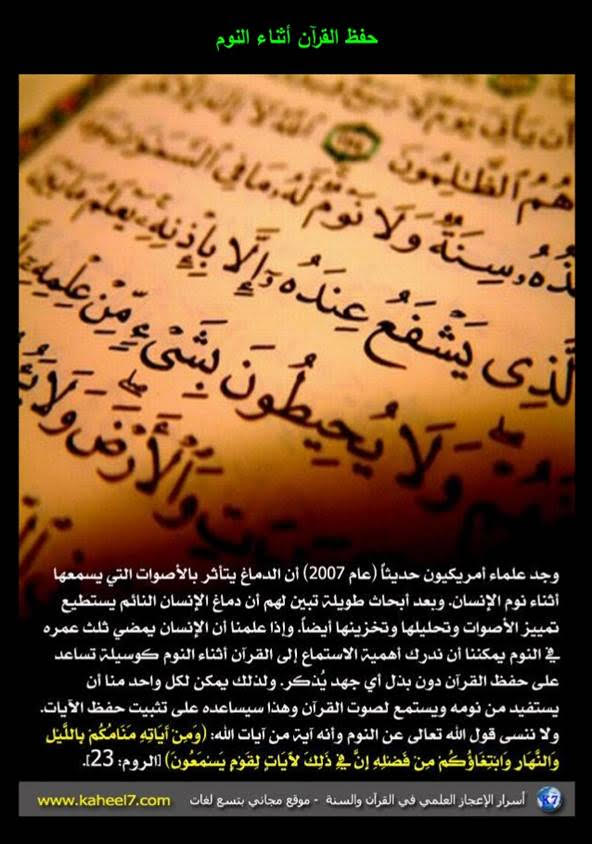 حفظ القرآن أثناء النوم
أن يأتي يوم لا بيع
هُمُ ٱلظَّـٰلِمُونَ ٢٥٤ ٱللَّهُ لَا إِلَـٰهَ إِلَّا هُوَ
خُذُهُۥ سِنَةٌ وَلَا نَوْمٌ لَّهُۥ مَا فِي ٱلسَّمَـٰوَٰتِ
لَّذِى يَشْفَعُ عِندَهُۥٓ إِلَّا بِإِذْنِهِۦ يَعْلَمُ مَا بَيْنَ
وَلَا يُحِيطُونَ بِشَىْءٍ مِّنْ عِلْمِهِۦٓ
وَٱلْأَرْضَ وَلَا
وجد علماء أمريكيون حديثاً (عام 2007) أن الدماغ يتأثر بالأصوات التي يسمعها
أثناء نوم الإنسان. وبعد أبحاث طويلة تبين لهم أن دماغ الإنسان النائم يستطيع
تمييز الأصوات وتحليلها وتخزينها أيضاً. وإذا علمنا أن الإنسان يمضي ثلث عمره
في النوم يمكننا أن ندرك أهمية الاستماع إلى القرآن أثناء النوم كوسيلة تساعد
على حفظ القرآن دون بذل أي جهد يُذكر. ولذلك يمكن لكل واحد منا أن
يستفيد من نومه ويستمع لصوت القرآن وهذا سيساعده على تثبيت حفظ الآيات.
ولا ننسى قول الله تعالى عن النوم وأنه آية من آيات الله: (وَمِنْ آَيَاتِهِ مَنَامُكُمْ بِاللَّيْلِ
وَالنَّهَارِ وَابْتِغَاؤُكُمْ مِنْ فَضْلِهِ إِنَّ فِي ذَلِكَ لَآَيَاتٍ لِقَوْمٍ يَسْمَعُونَ) [الروم: 23].
أسرار الإعجاز العلمي في القرآن والسنة - موقع مجاني بتسع لغات
K7
www.kaheel7.com